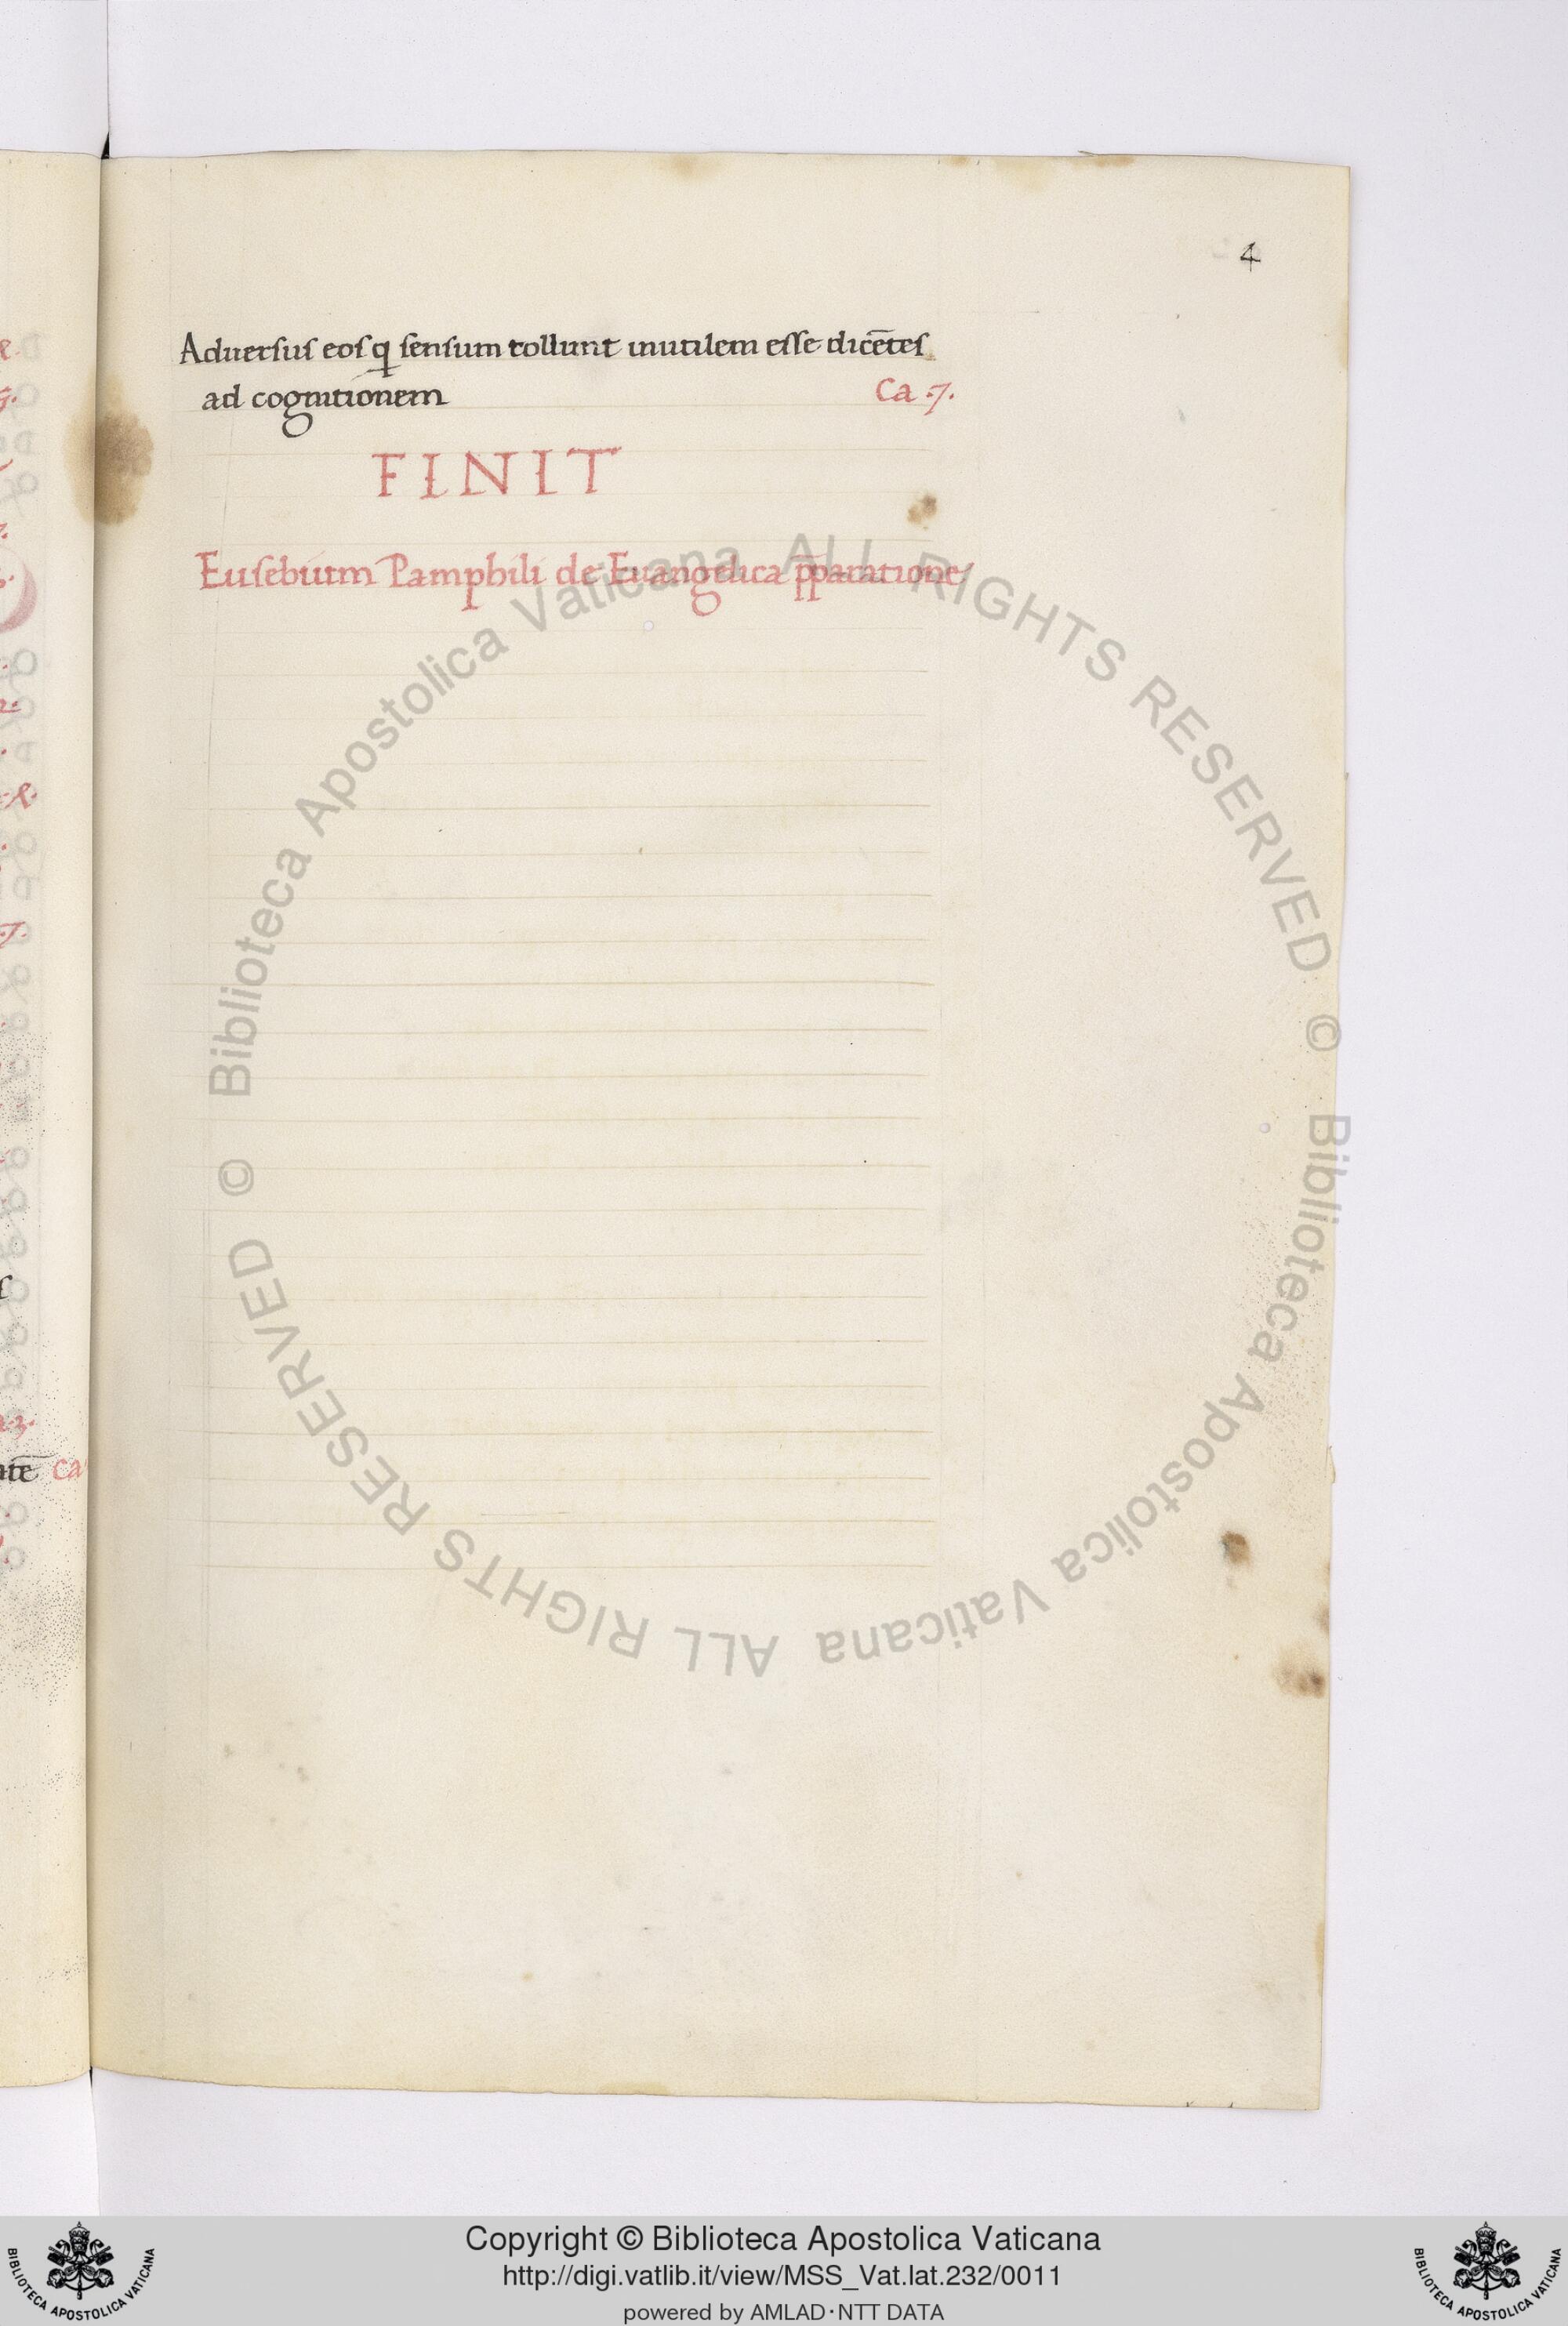 4
Aduersus eos q sensum tollunt inutilem esse dicētes
ad cognitionem Ca .7.
FINIT
Eusebium Pamphili de Euangelica p̄paratione
nte Ca
© Biblioteca Apostolica Vaticana ALL RIGHTS RESERVED © Biblioteca Apostolica Vaticana ALL RIGHTS RESERVED
Copyright © Biblioteca Apostolica Vaticana
http://digi.vatlib.it/view/MSS_Vat.lat.232/0011
powered by AMLAD·NTT DATA
BIBLIOTECA APOSTOLICA VATICANA
BIBLIOTECA APOSTOLICA VATICANA